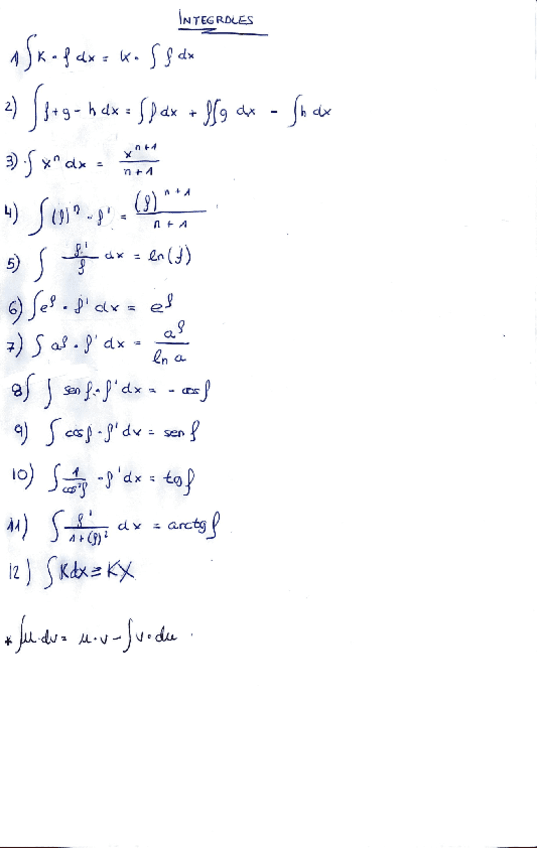 INTEGRALES
1 ∫ K · f dx = K · ∫ f dx
2) ∫ f + g - h dx = ∫ f dx + ∫ g dx - ∫ h dx
3) · ∫ xⁿ dx = xⁿ⁺¹ / n+1
4) ∫ (f)ⁿ · f' = (f)ⁿ⁺¹ / n+1
5) ∫ f' / f dx = ln(f)
6) ∫ e^f · f' dx = e^f
7) ∫ a^f · f' dx = a^f / ln a
8) ∫ sen f · f' dx = - cos f
9) ∫ cos f · f' dx = sen f
10) ∫ 1 / cos² f · f' dx = tg f
11) ∫ f' / 1+(f)² dx = arctg f
12) ∫ K dx = KX
* ∫ u · dv = u · v - ∫ v · du .